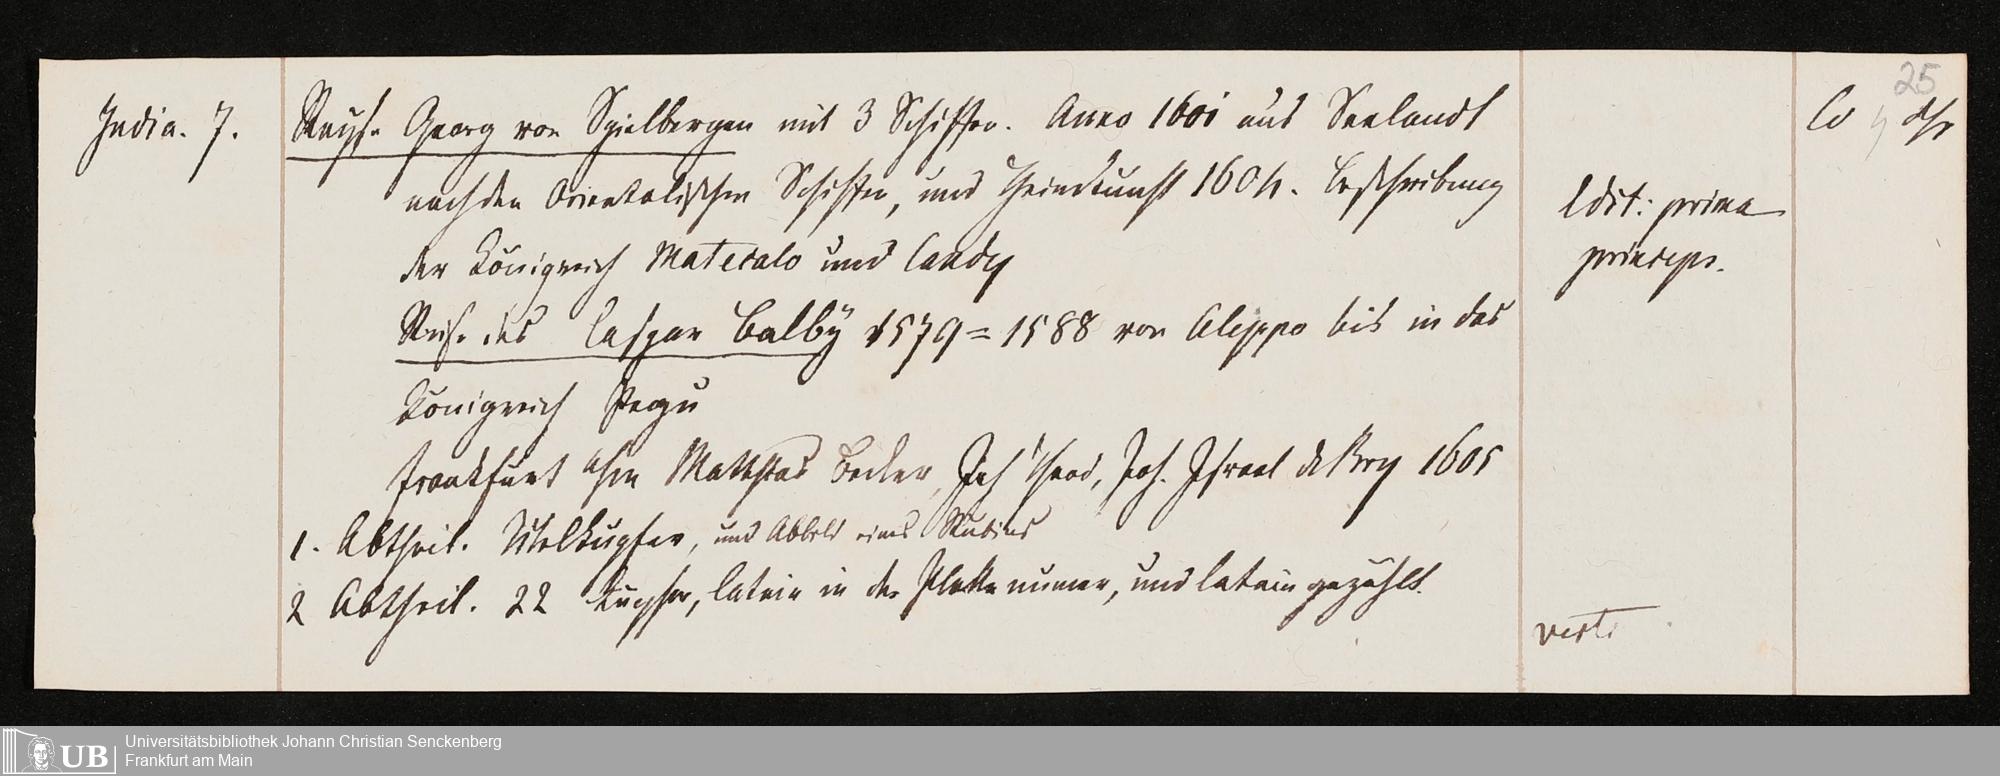 25
India. 7.
Reyse Georg von Spielbergen mit 3 Schiffen. Anno 1601 aus Seelandt
nach den Orientalischen Schiffen, und 1604. Beschreibung
der Königreich Matecalo und Candy
Reise des Caspar Balby 1579=1588 von Aleppo bis in das
Königreich Pegu
Frankfurt Matthias Becker, Joh Theod, Joh. Israel de Bry 1605
1. Abtheil. Titelkupfer, und Abbild eines
2 Abtheil. 22 Kupfer, latein in der Platte numer, und latein gezählt.
Edit: prima
princeps.
verte
Universitätsbibliothek Johann Christian Senckenberg
UB
Frankfurt am Main